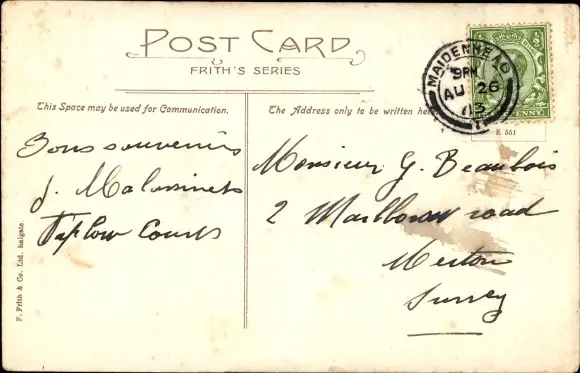 POST CARD
FRITH'S SERIES
MAIDENHEAD
9PM
AU 26
13
½
This Space may be used for Communication.
The Address only to be written here
E. 551
Bons souvenirs
J.
Taplow Court
Monsieur G. Beaubois
2 road
Merton
Surrey
F. Frith & Co. Ltd. Reigate.